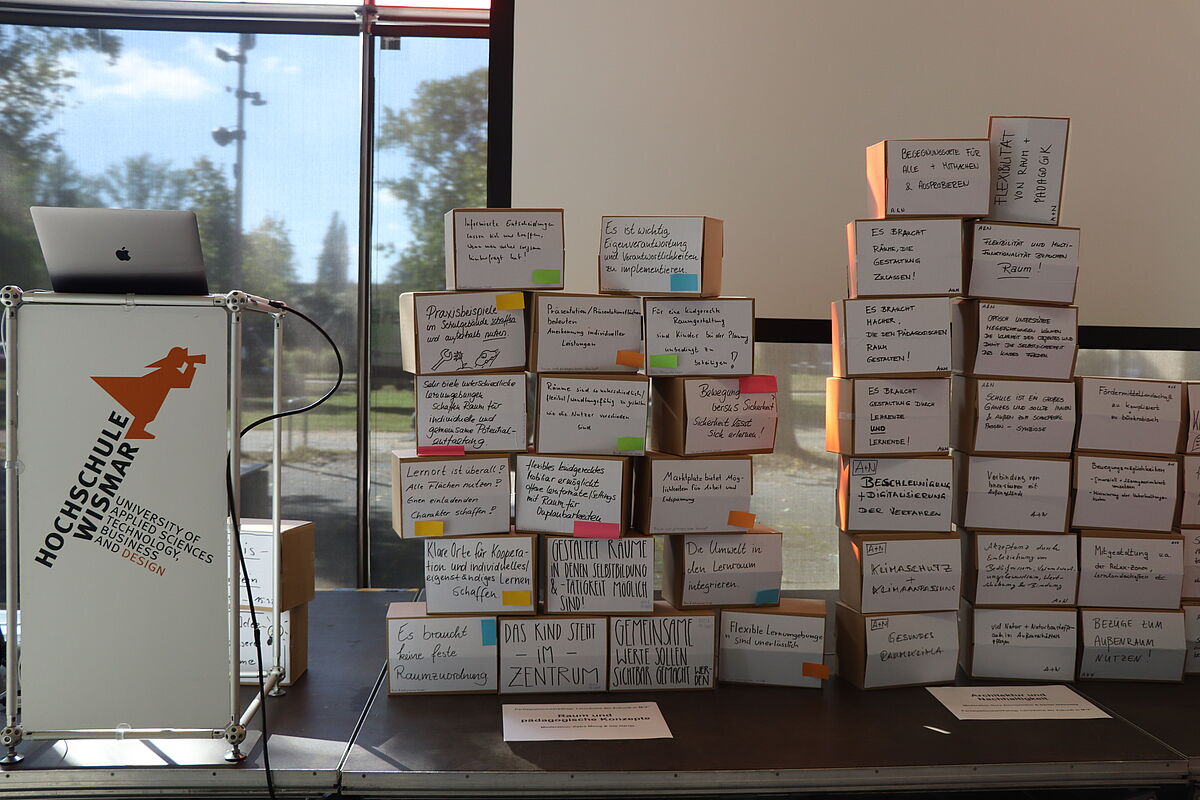 HOCHSCHULE
WISMAR
UNIVERSITY OF
APPLIED SCIENCES
TECHNOLOGY,
BUSINESS
AND DESIGN
Informierte Entscheidungen
lassen sich nur treffen,
wenn man vorher
hat!
Es ist wichtig,
Eigenverantwortung
und Verantwortlichkeiten
zu implementieren.
Praxisbeispiele
im Schulgebäude schaffen
und außerhalb nutzen
Präsentation/Präsentationsflächen
bedeuten
Anerkennung individueller
Leistungen
Für eine kindgerechte
Raumgestaltung
sind Kinder bei der Planung
unbedingt zu
beteiligen!
Sehr viele unterschiedliche
Lernumgebungen
schaffen Raum für
individuelle und
gemeinsame Potential-
entfaltung.
Räume sind so unterschiedlich/
flexibel/wandlungsfähig zu
wie die Nutzer verschieden
sind
Bewegung
versus Sicherheit?
Sicherheit lässt
sich erlernen!
Lernort ist überall?
Alle Flächen nutzen?
Einen einladenden
Charakter schaffen?
flexibles kindgerechtes
Mobiliar ermöglicht
offene Lernformate/settings
mit Raum für
Unplanbarkeiten
Marktplatz bietet Mög-
lichkeiten für Arbeit und
Entspannung
Klare Orte für Koopera-
tion und individuelles/
eigenständiges Lernen
schaffen.
GESTALTET RÄUME
IN DENEN SELBSTBILDUNG
& -TÄTIGKEIT MÖGLICH
SIND!
Die Umwelt in
den Lernraum
integrieren.
Es braucht
keine feste
Raumzuordnung
DAS KIND STEHT
- IM -
ZENTRUM
GEMEINSAME
WERTE SOLLEN
SICHTBAR GEMACHT WER-
DEN
Flexible Lernumgebunge
n sind unerlässlich
Raum und
pädagogische Konzepte
BEGEGNUNGSORTE FÜR
ALLE + MITMACHEN
& AUSPROBIEREN
A&N
FLEXIBILITÄT
VON RAUM +
PÄDAGOGIK
A+N
ES BRAUCHT
RÄUME, DIE
GESTALTUNG
ZULASSEN!
A&N
A&N
FLEXIBILITÄT UND MULTI-
FUNKTIONALITÄT BRAUCHEN
Raum!
ES BRAUCHT
MACHER,
DIE DEN PÄDAGOGISCHEN
RAUM
GESTALTEN!
A&N
A&N
OPTISCH UNTERSTÜTZTE
DIE KLARHEIT DES OBJEKTES UND
DAMIT DIE SELBSTSICHERHEIT
DES KINDES FÖRDERN
ES BRAUCHT
GESTALTUNG DURCH
LEHRENDE
UND
LERNENDE!
A&N
A&N
SCHULE IST EIN GROßES
GANZES UND SOLLTE INNEN
& AUßEN ZUM SCHAUSPIEL
PASSEN - SYMBIOSE
Fördermittellandschaft
zu kompliziert
zu bürokratisch
A+N
BESCHLEUNIGUNG
+ DIGITALISIERUNG
DER VERFAHREN
Verbindung von
Innenräumen mit
Außengelände
A+N
Bewegungsmöglichkeiten
A+N
KLIMASCHUTZ
+
KLIMAANPASSUNG
Akzeptanz durch
Einbeziehung von
A+N
Mitgestaltung u.a.
der Relax-Zonen,
Lernlandschaften etc.
A+N
GESUNDES
RAUMKLIMA
A+N
BEZÜGE ZUM
AUßENRAUM
NUTZEN!
Architektur und
Nachhaltigkeit